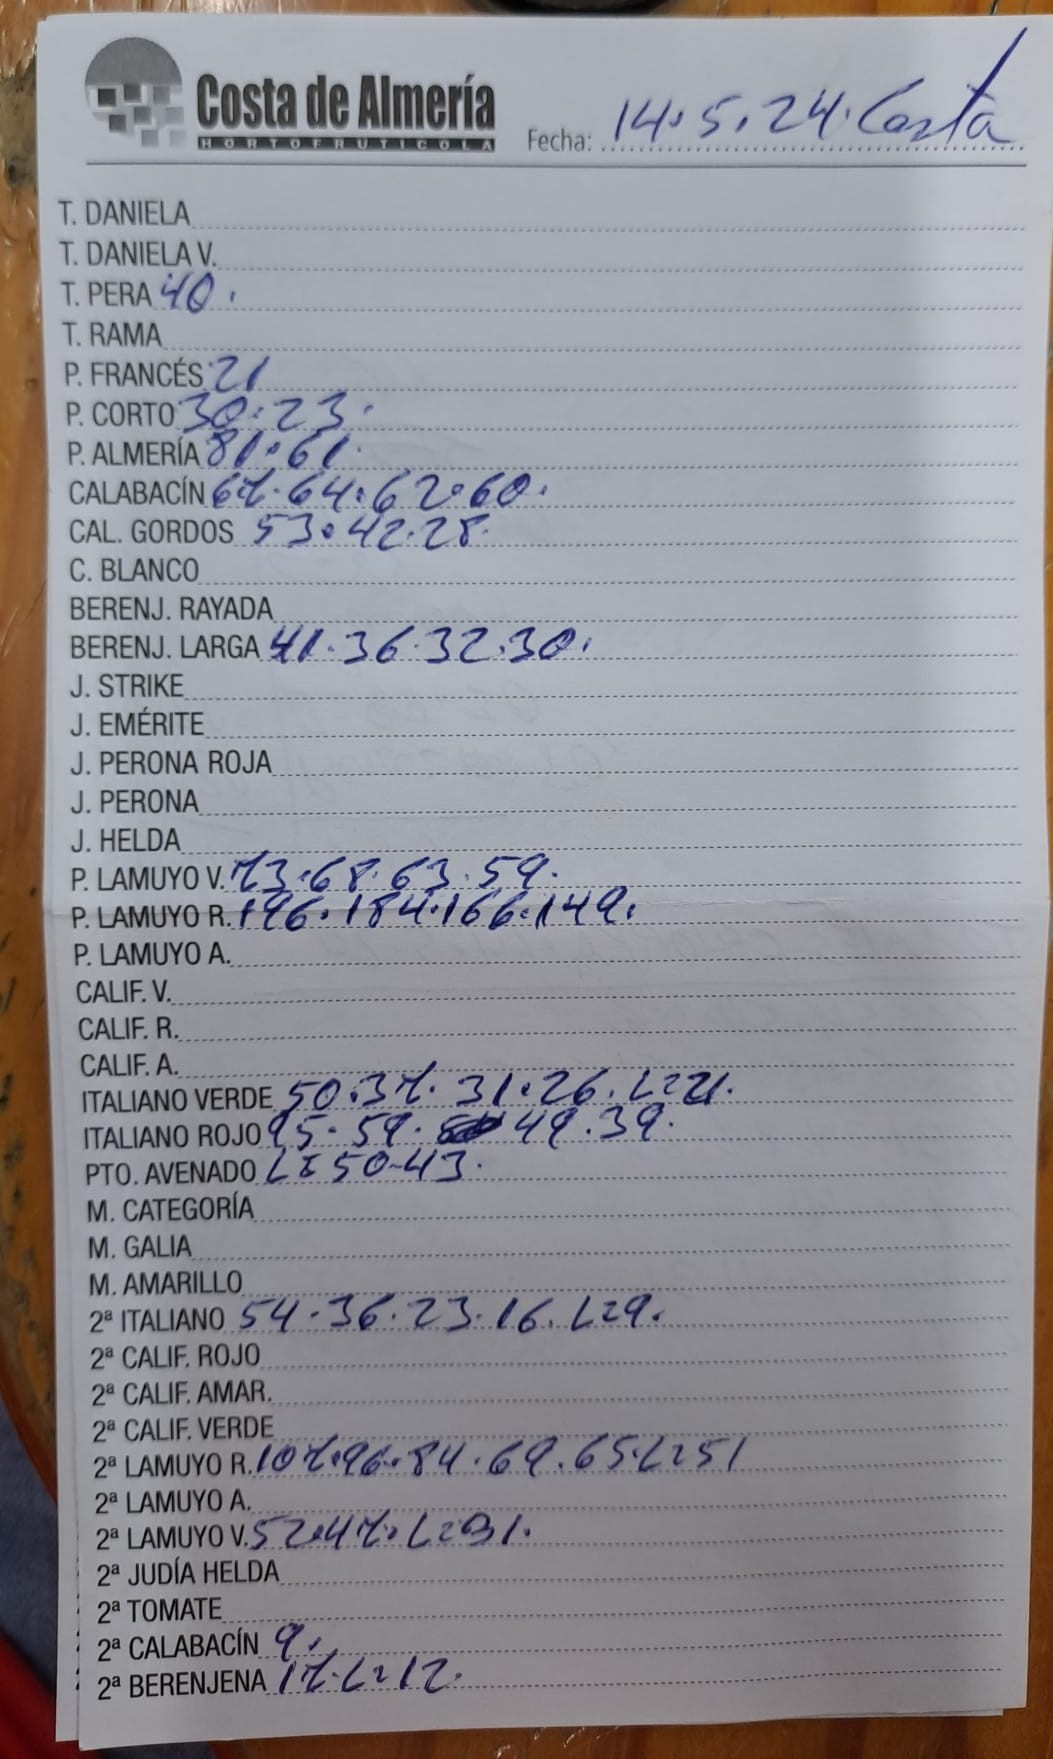 Costa de Almería
HORTOFRUTICOLA
Fecha: 14.5.24. Costa
T. DANIELA
T. DANIELA V.
T. PERA 40.
T. RAMA
P. FRANCÉS 21
P. CORTO 30.23.
P. ALMERÍA 81.61.
CALABACÍN 67.64.62.60.
CAL. GORDOS 53.42.28.
C. BLANCO
BERENJ. RAYADA
BERENJ. LARGA 41.36.32.30.
J. STRIKE
J. EMÉRITE
J. PERONA ROJA
J. PERONA
J. HELDA
P. LAMUYO V. 73.68.63.59.
P. LAMUYO R. 196.184.166.149.
P. LAMUYO A.
CALIF. V.
CALIF. R.
CALIF. A.
ITALIANO VERDE 50.37.31.26.L=21.
ITALIANO ROJO 95.59.49.39.
PTO. AVENADO L=50-43.
M. CATEGORÍA
M. GALIA
M. AMARILLO
2ª ITALIANO 54.36.23.16.L=9.
2ª CALIF. ROJO
2ª CALIF. AMAR.
2ª CALIF. VERDE
2ª LAMUYO R. 107.96.84.69.65.L=51
2ª LAMUYO A.
2ª LAMUYO V. 52.47.L=31.
2ª JUDÍA HELDA
2ª TOMATE
2ª CALABACÍN 9.
2ª BERENJENA 17.L=12.